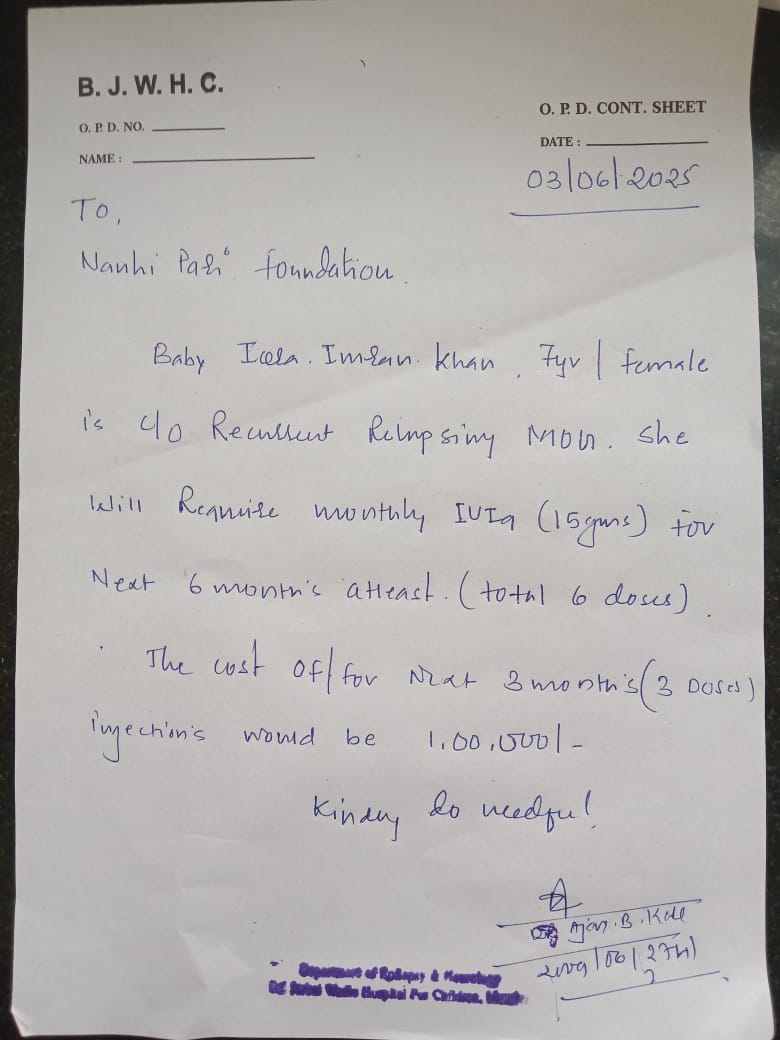 B. J. W. H. C.
O. P. D. CONT. SHEET
O. P. D. NO.
DATE :
NAME :
03/06/2025
To,
Nanhi Pari foundation.
Baby Imran. Khan, 7yr / female
is c/o Recurrent Relapsing MOG. She
Will Require monthly IVIg (15gms) for
Next 6 month's atleast. (total 6 doses).
The cost of/for Next 3 month's (3 Doses)
injection's would be 1,00,000/-
Kindly do needful!
B. Kale
2009/06/2741
Department of Epilepsy & Neurology
Wadia Hospital For Children,